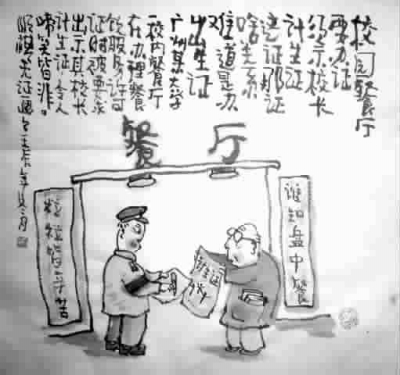 校园餐厅
要办证
须示校长
计生证
这证那证
啥关系
难道是办
出生证
广州某大学
一校内餐厅
在办理餐
饮服务许可
证时被要求
出示其校长
计生证令人
啼笑皆非。
壬辰年
餐厅
谁知盘中餐
粒粒皆辛苦